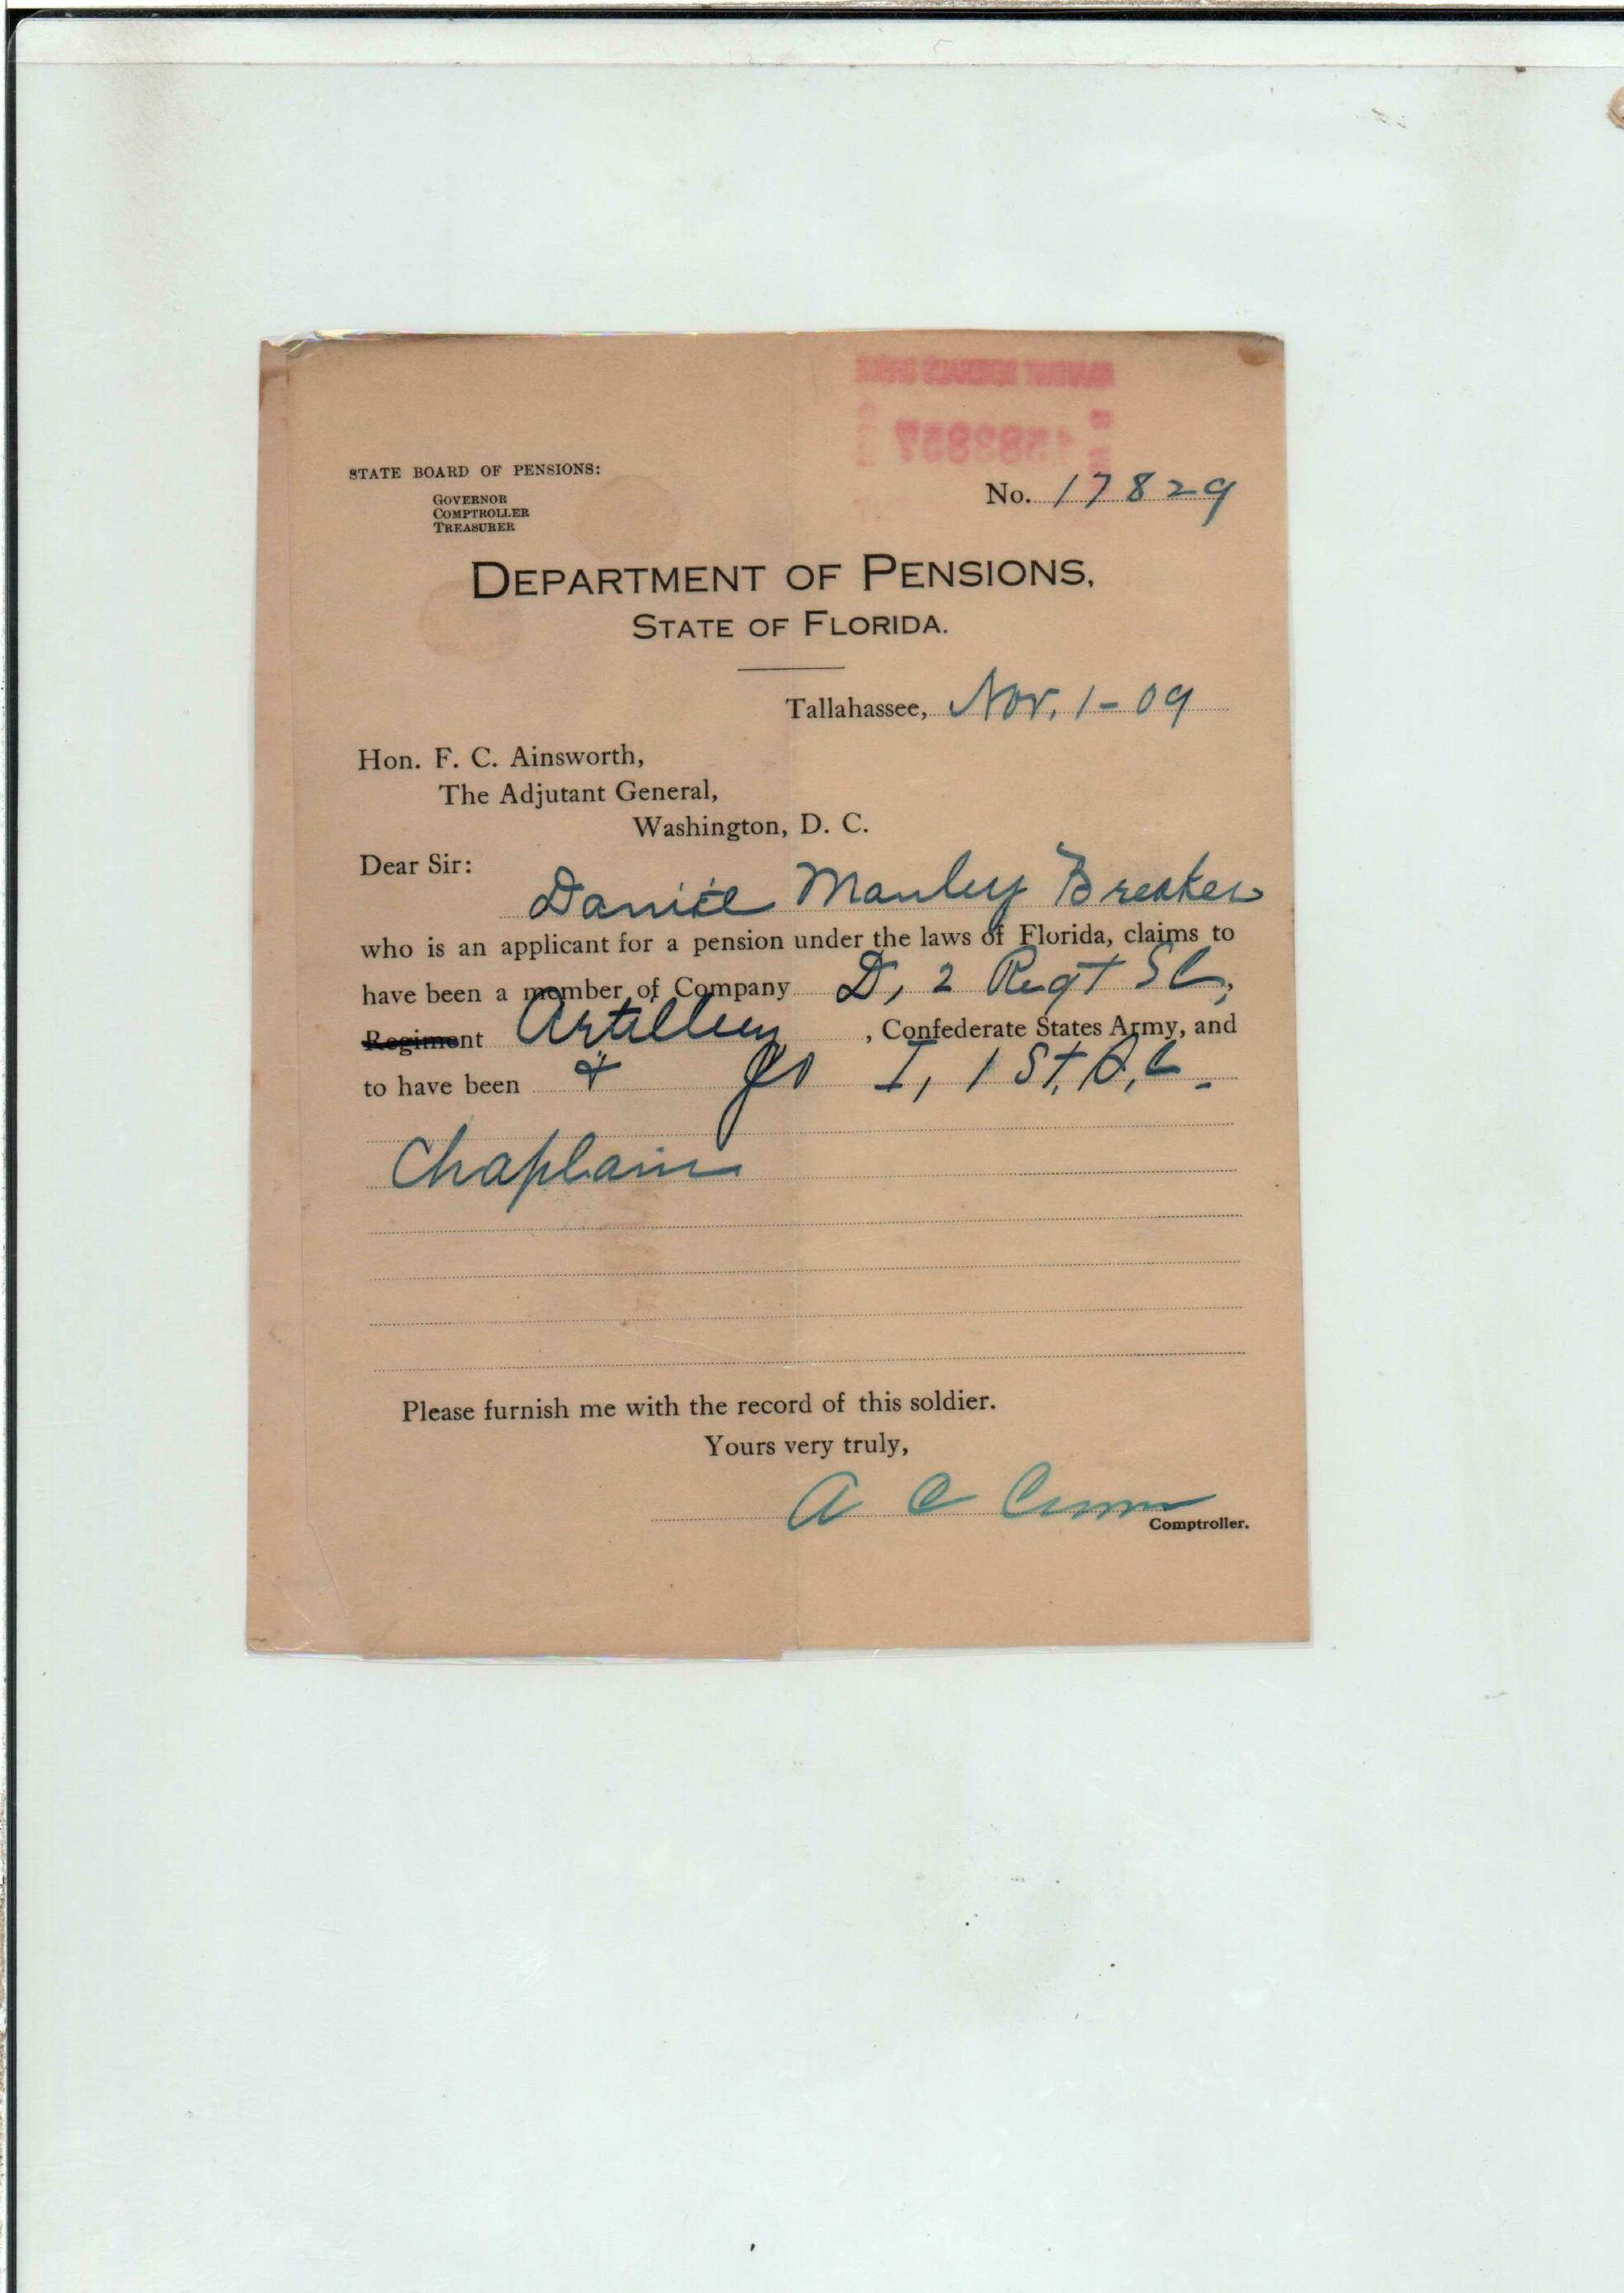 STATE BOARD OF PENSIONS:
GOVERNOR
COMPTROLLER
TREASURER
No. 17829
DEPARTMENT OF PENSIONS,
STATE OF FLORIDA.
Tallahassee, Nov. 1-09
Hon. F. C. Ainsworth,
The Adjutant General,
Washington, D. C.
Dear Sir:
Daniel Manley Breaker
who is an applicant for a pension under the laws of Florida, claims to
have been a member of Company D, 2 Regt S C,
Regiment Artillery, Confederate States Army, and
to have been & Co I, 1 St.
Chaplain
Please furnish me with the record of this soldier.
Yours very truly,
A C Croom
Comptroller.